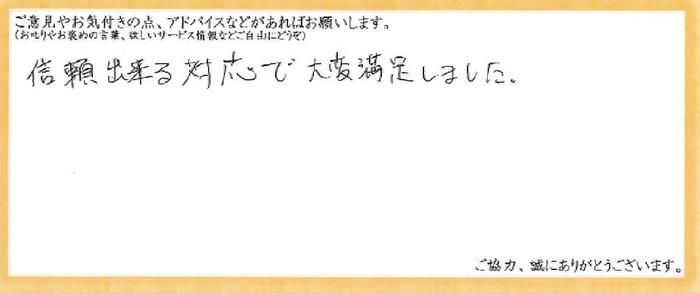 ご意見やお気付きの点、アドバイスなどがあればお願いします。
(お叱りやお褒めの言葉、欲しいサービス情報などご自由にどうぞ)
信頼出来る対応で大変満足しました。
ご協力、誠にありがとうございます。